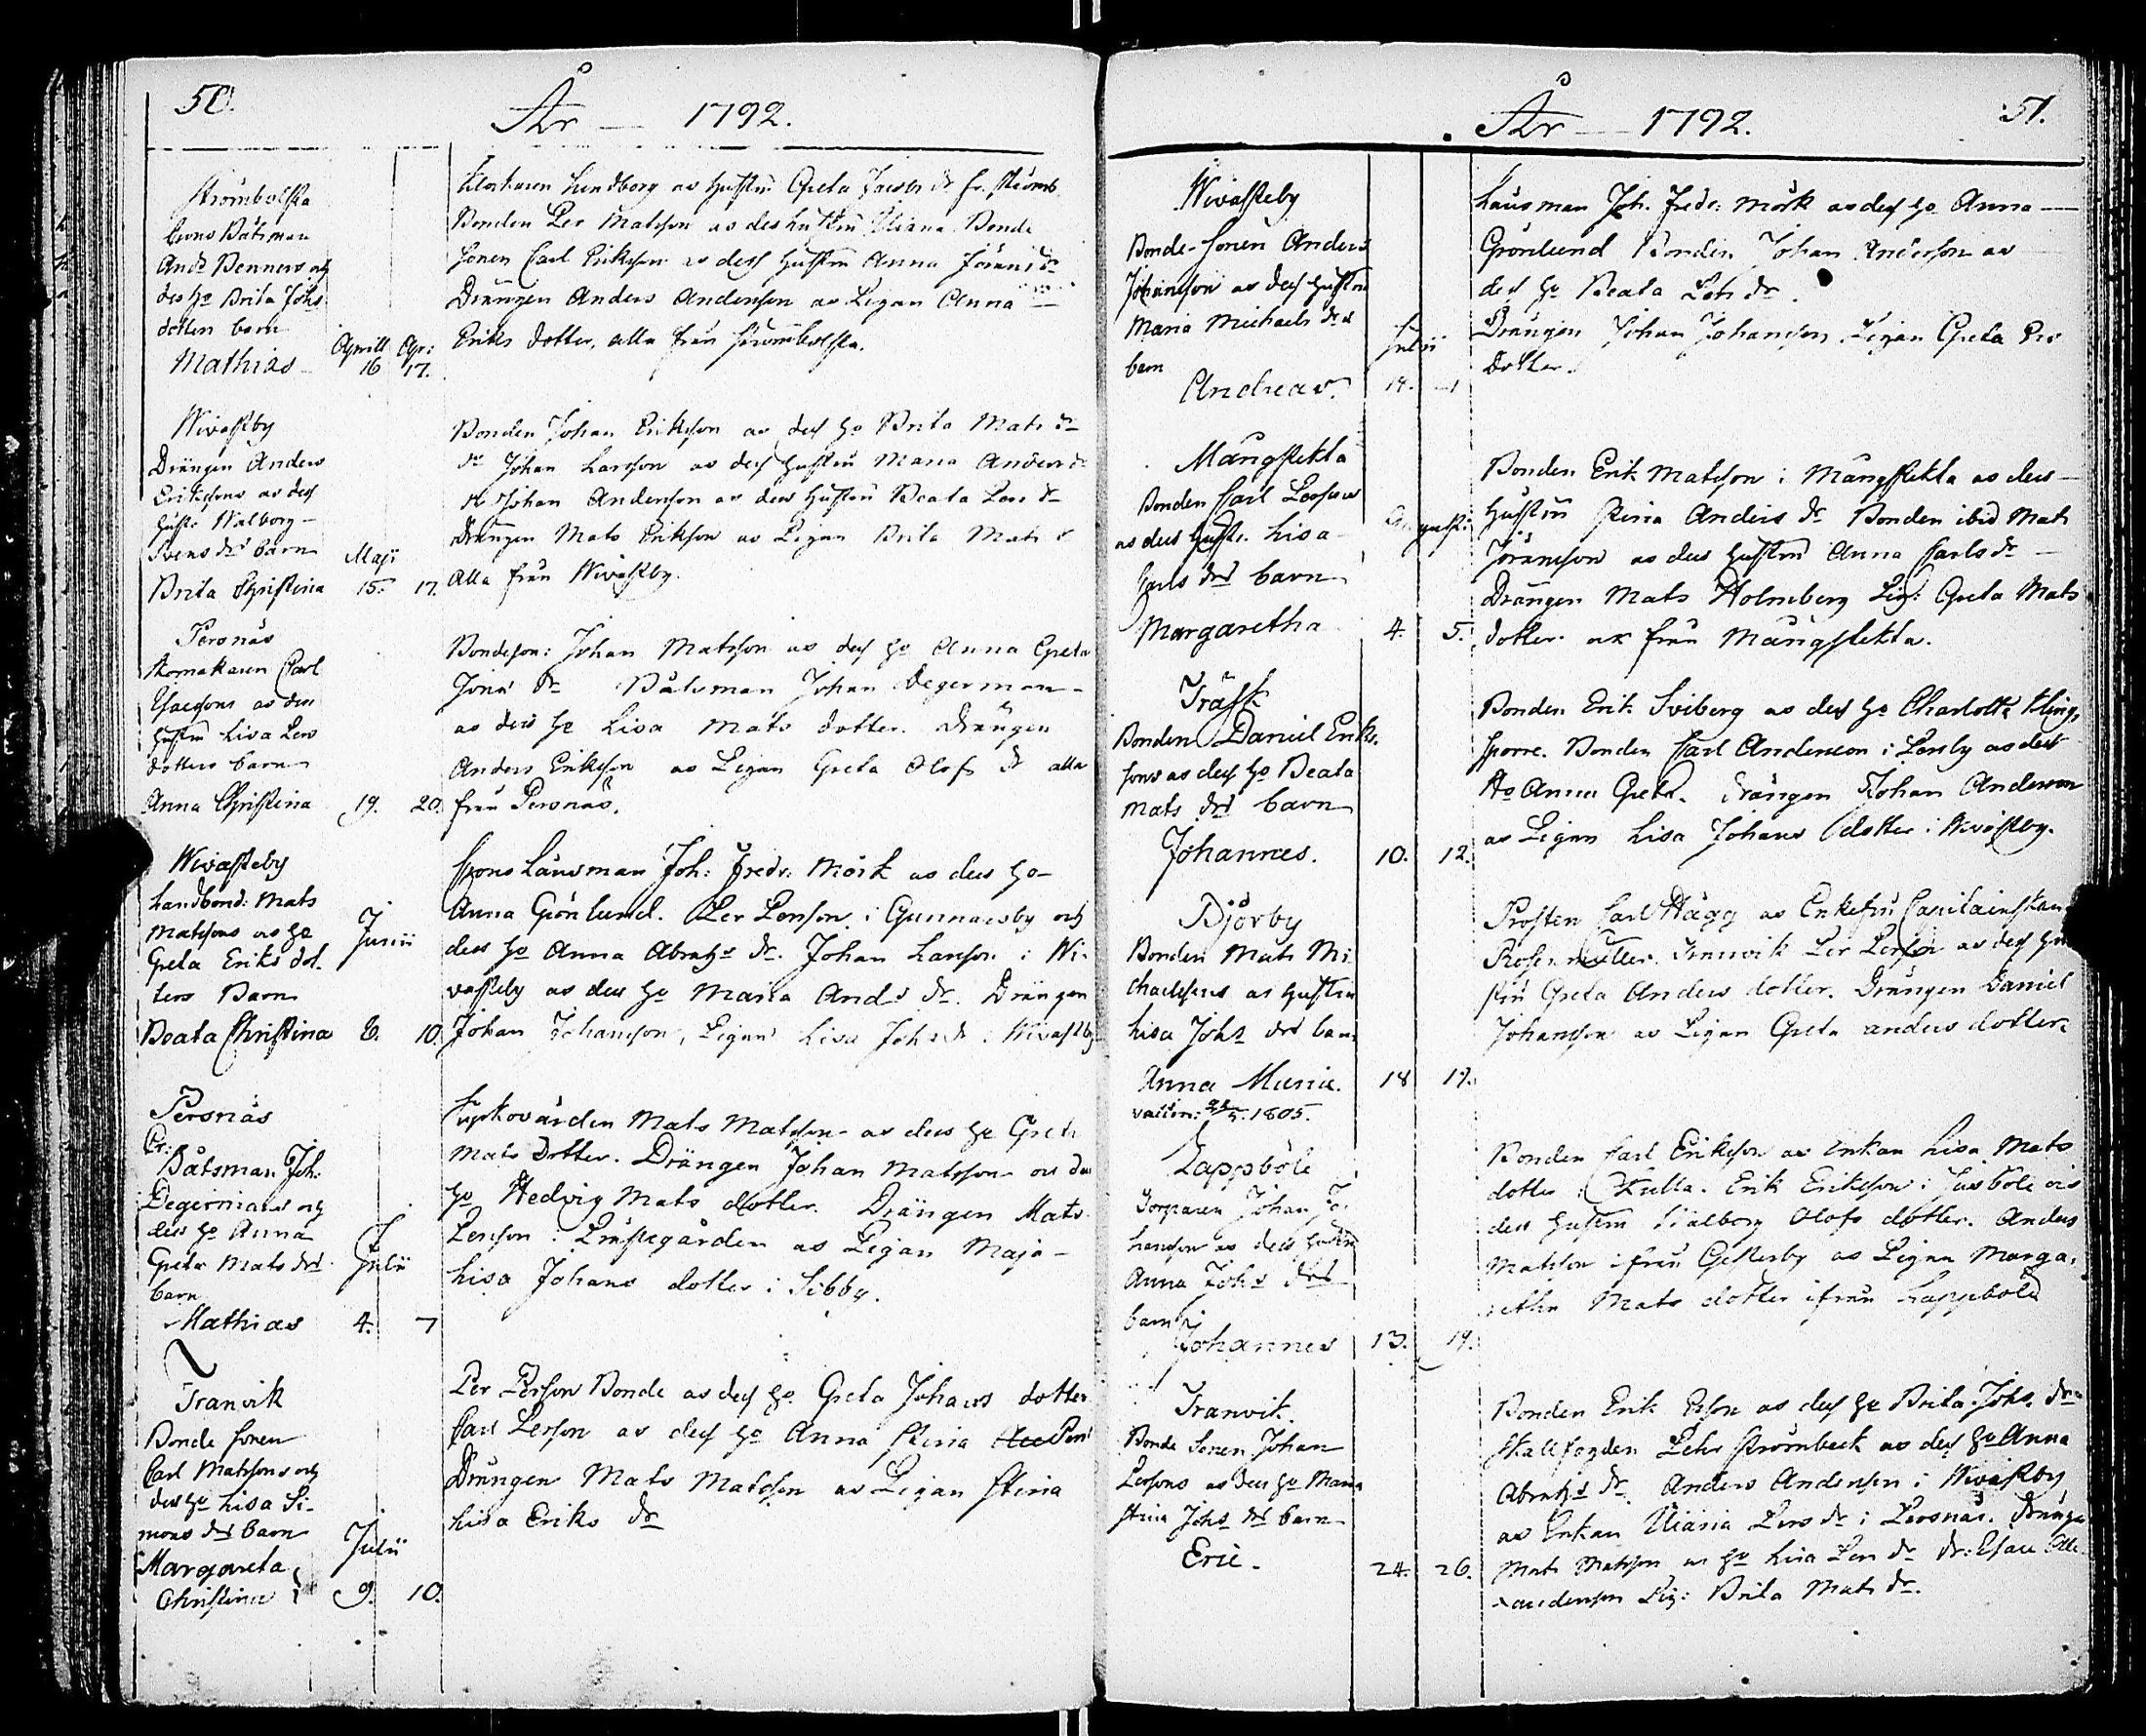 50.
År — 1792.
Strömbolsta
Crons Båtsman
And: Denners och
des ho Brita Johs
dotters barn
Mathias
Aprill Apr:
16 17.
Klockaren Lundborg as hustru Greta Jacobs dr fr. Strömb.
Bonden Per Matsson as des hustru Maria Bonde
sonen Carl Eriksson as dess hustru Anna
Drängen Anders Andersson as Pigan Anna
Eriks dotter, alla från Strömbolsta.
Wivastby
Drängen Anders
Erikssons as dess
hust: Walborg
Svens drs barn
Brita Christina
Maji
15. 17.
Bonden Johan Eriksson as dess ho Brita Mats dr
dr Johan Larsson as dess hustru Maria Anders dr
Johan Andersson as des hustru Beata Pers dr
Drängen Mats Eriksson as Pigan Brita Mats dr
Alla från Wivastby.
Persnäs
Skomakaren Carl
Esaessons as des
hustru Lisa Pers
dotters barn
Anna Christina
19. 20.
Bondeson: Johan Matsson as dess ho Anna Greta
Jöns dr Båtsman Johan Degerman
as des ho Lisa Mats dotter. Drängen
Anders Eriksson as Pigan Greta Olofs dr alla
från Persnäs.
Wivasteby
Landbond: Mats
Matssons as ho
Greta Eriks dot-
ters Barn
Beata Christina
Junii
8. 10.
Crons Länsman Joh: Fredr: Mörk as des ho
Anna Grönlund. Per Persson i Gunnarsby och
des ho Anna Abrahs dr. Johan Larsson i Wi-
vasteby as des ho Maria Ands dr. Drängen
Johan Johansson, Pigan Lisa Johs dr i Wivastby
Persnäs
Cr:
Båtsman Joh:
Degermans och
des ho Anna
Greta Mats drs
barn
Mathias
Julii
4. 7
Kyrkovärden Mats Matsson as des ho Greta
Mats dotter. Drängen Johan Matsson as des
ho Hedvig Mats dotter. Drängen Mats
Persson i Prästegården as Pigan Maja
Lisa Johans dotter i Sibby.
Tranvik
Bonde sonen
Carl Matssons och
des ho Lisa Si-
mons drs barn
Margareta
Christina
Julii
9. 10.
Per Persson Bonde as dess ho Greta Johans dotter
Carl Persson as dess ho Anna Stina
Drängen Mats Matsson as Pigan Stina
Lisa Eriks dr
År — 1792.
51.
Wivasteby
Bonde-Sonen Anders
Johansson as dess hustru
Maria Michaels drs
barn
Andreas.
Julii
14.
Länsman Joh. Fredr: Mörk as dess ho Anna
Grönlund Bonden Johan Andersson as
dess ho Beata Pehrs dr.
Drängen Johan Johansson Pigan Greta Pers
dotter.
Mångstekta
Bonden Carl Larssons
as des hust: Lisa
Carls drs barn
Margaretha
Augusti
4. 5.
Bonden Erik Matsson i Mångstekta as des
hustru Stina Anders dr Bonden ibid Mats
Jöransson as des hustru Anna Carls dr
Drängen Mats Holmberg Pig: Greta Mats
dotter från Mångstekta.
Träsk
Bonden Daniel Eriks.
sons as dess ho Beata
Mats drs barn
Johannes.
10. 12.
Bonden Erik Sviberg as des ho Charlotta Kling
sporre. Bonden Carl Andersson i Persby as dess
Ho Anna Greta. Drängen Johan Andersson
as Pigan Lisa Johans dotter i Wivastby.
Björby
Bonden Mats Mi
chaelssons as hustru
Lisa Johs drs barn
Anna Maria.
vaccin: 1805.
18 19.
Prosten Carl Hägg as Enkefru Capitainskan
Rosenmüller. Tranvik Per Persson as dess hu
stru Greta Anders dotter. Drängen Daniel
Johansson as Pigan Greta anders dotter
Lappböle
Torparen Johan Jo.
hansson as des hustru
Anna Johs drs
barn
Johannes
13. 14.
Bonden Carl Eriksson as Enkan Lisa Mats
dotter i Kulla. Erik Eriksson i
des hustru Walborg Olofs dotter. Anders
Matsson ifrån Gesterby as Pigan Marga-
retha Mats dotter ifrån Lappböle
Tranvik.
Bonde Sonen Johan
Perssons as des ho Maria
Stina Johs drs barn
Eric.
24. 26.
Bonden Erik Ersson as dess ho Brita Johs dr
Skallfogden Pehr Strömbeck as dess ho Anna
Abrahs dr Anders Andersson i Wivastby
as Enkan Maria Pers dr i Persnäs. Dränge
Mats Matsson as ho Lisa Pers dr dr: Esaie Alle-
xandersson Pig: Brita Mats dr.